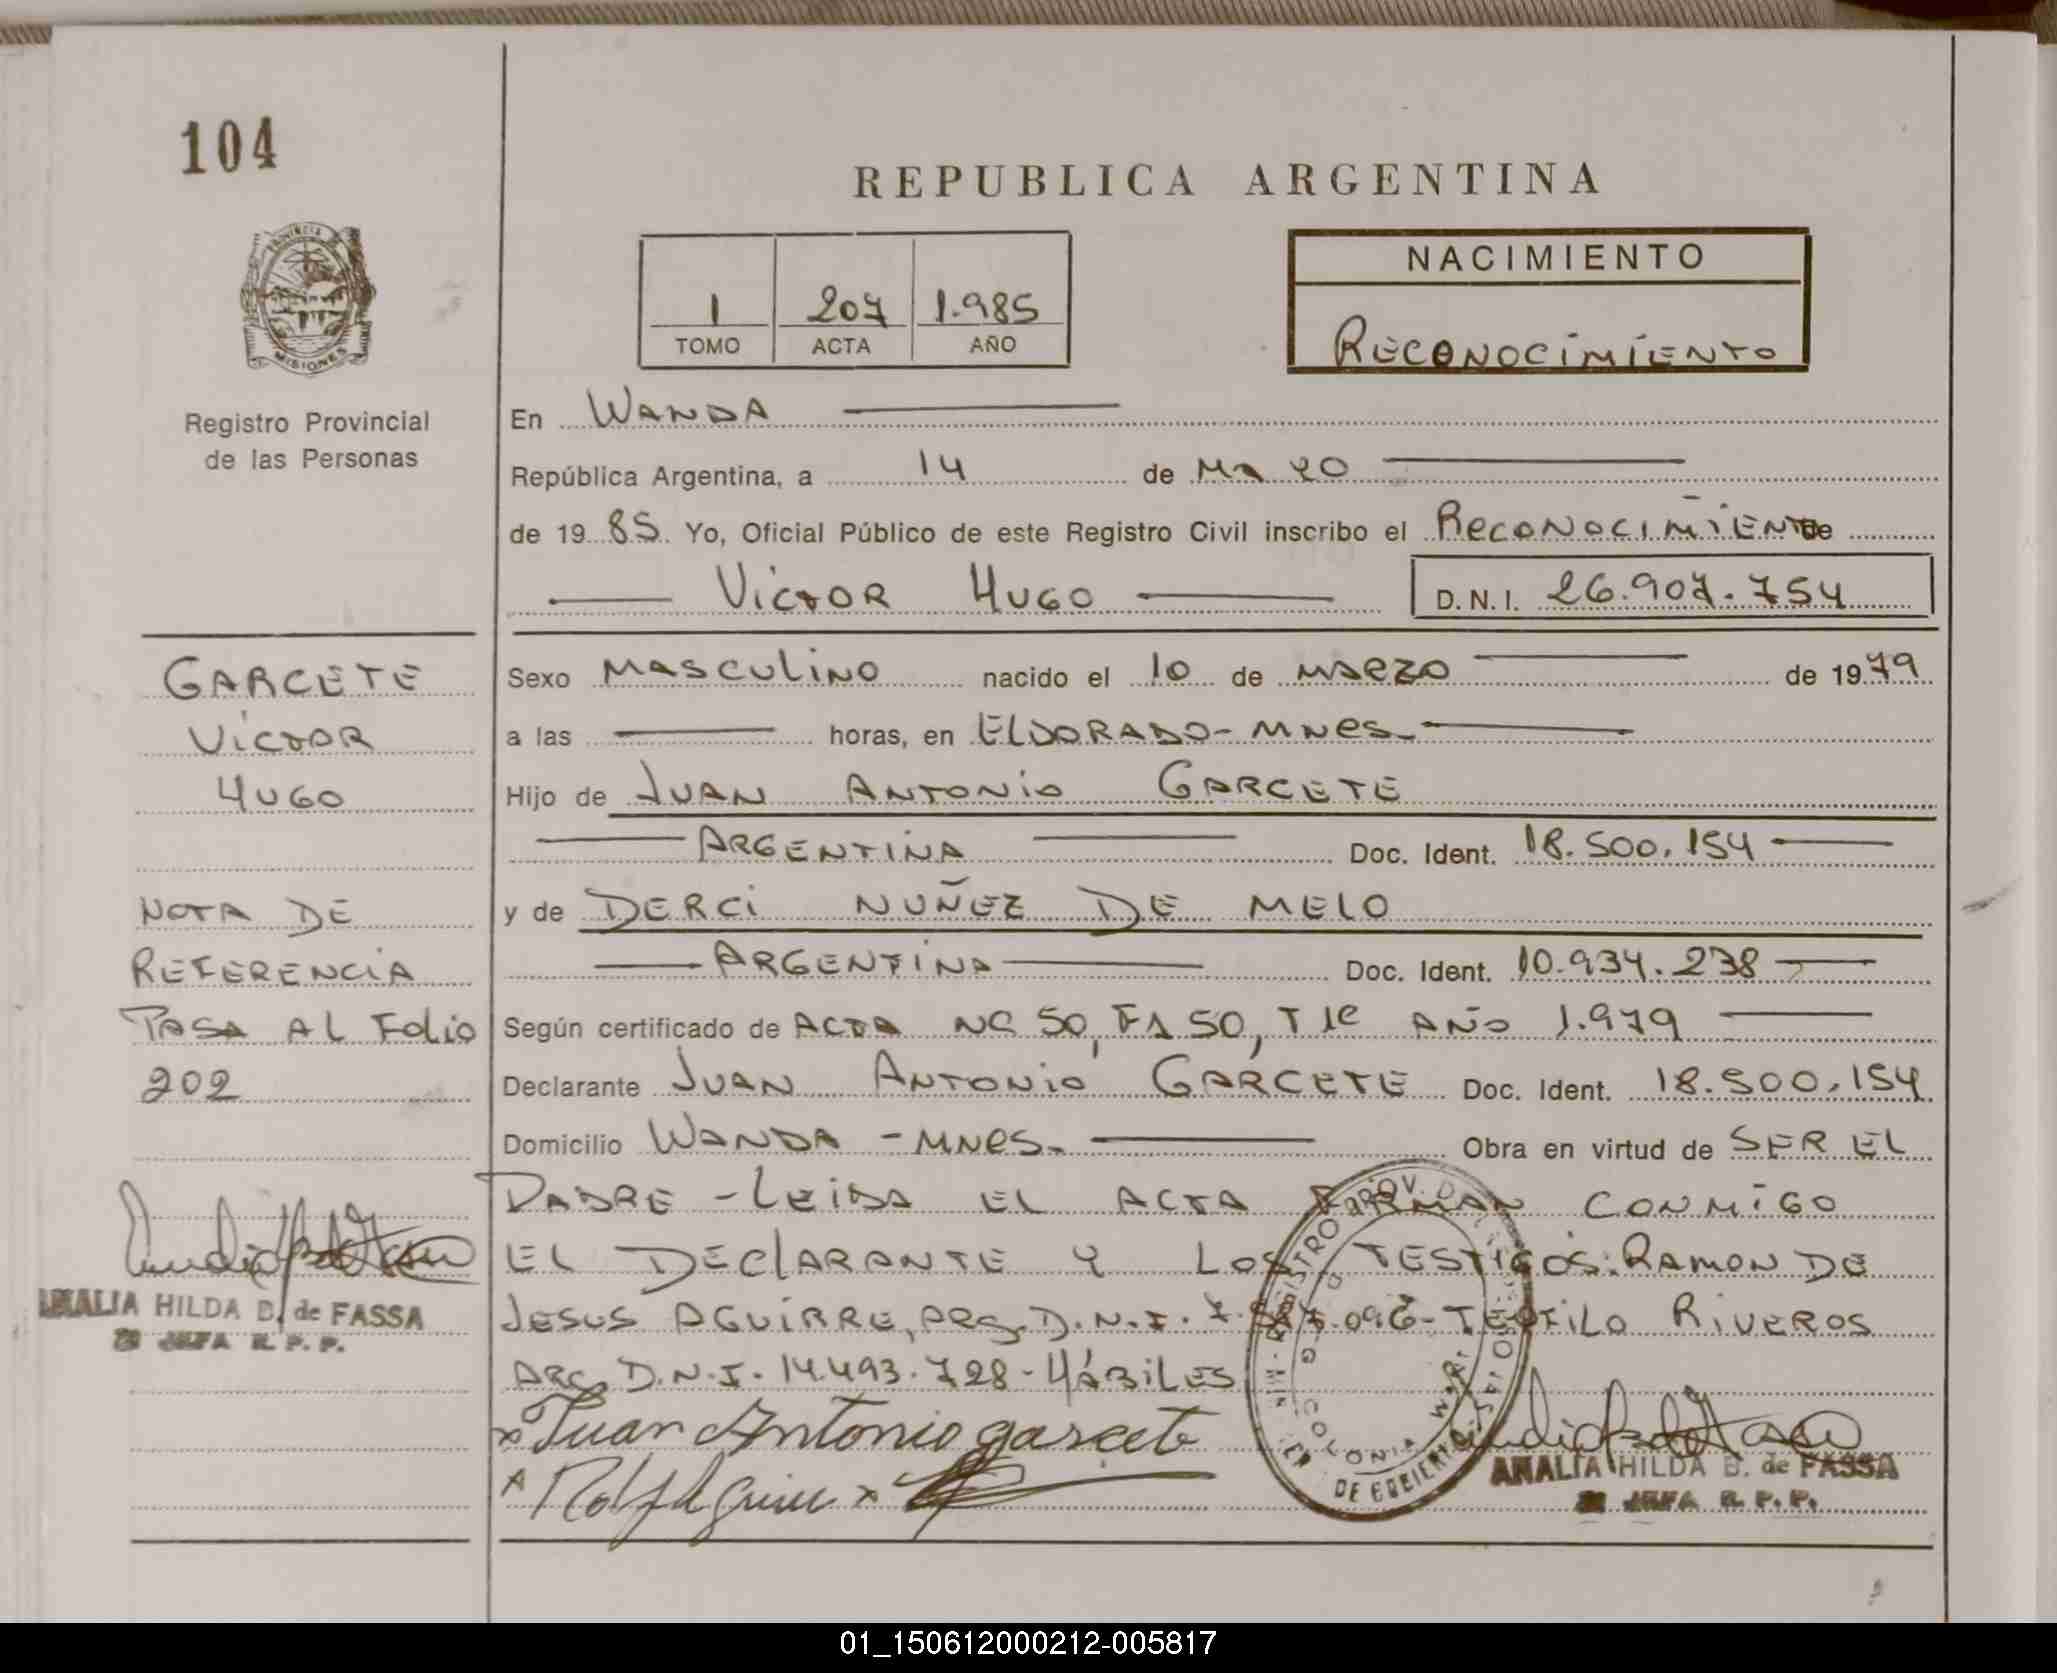 104
REPUBLICA ARGENTINA
PROVINCIA DE
MISIONES
1 207 1.985
TOMO ACTA AÑO
NACIMIENTO
RECONOCIMIENTO
Registro Provincial
de las Personas
En WANDA
República Argentina, a 14 de MARZO
de 1985 Yo, Oficial Público de este Registro Civil inscribo el RECONOCIMIENTO de
VICTOR HUGO D.N.I. 26.907.754
GARCETE
VICTOR
HUGO
NOTA DE
REFERENCIA
PASA AL FOLIO
202
ANALIA HILDA B. de FASSA
JEFA R. P. P.
Sexo MASCULINO nacido el 10 de MARZO de 1979
a las horas, en ELDORADO-MNES-
Hijo de JUAN ANTONIO GARCETE
ARGENTINA Doc. Ident. 18.500.154
y de DERCI NUÑEZ DE MELO
ARGENTINA Doc. Ident. 10.934.238
Según certificado de ACTA Nº 50, Fº 50, T 1º AÑO 1.979
Declarante JUAN ANTONIO GARCETE Doc. Ident. 18.500.154
Domicilio WANDA - MNES. Obra en virtud de SER EL
PADRE - LEIDA EL ACTA FIRMAN CONMIGO
EL DECLARANTE Y LOS TESTIGOS: RAMON DE
JESUS AGUIRRE, ARG. D.N.I. 096- TEOFILO RIVEROS
ARG. D.N.I. 14.493.728 - HÁBILES
Juan Antonio garcete
ANALIA HILDA B. de FASSA
JEFA R. P. P.
01_150612000212-005817